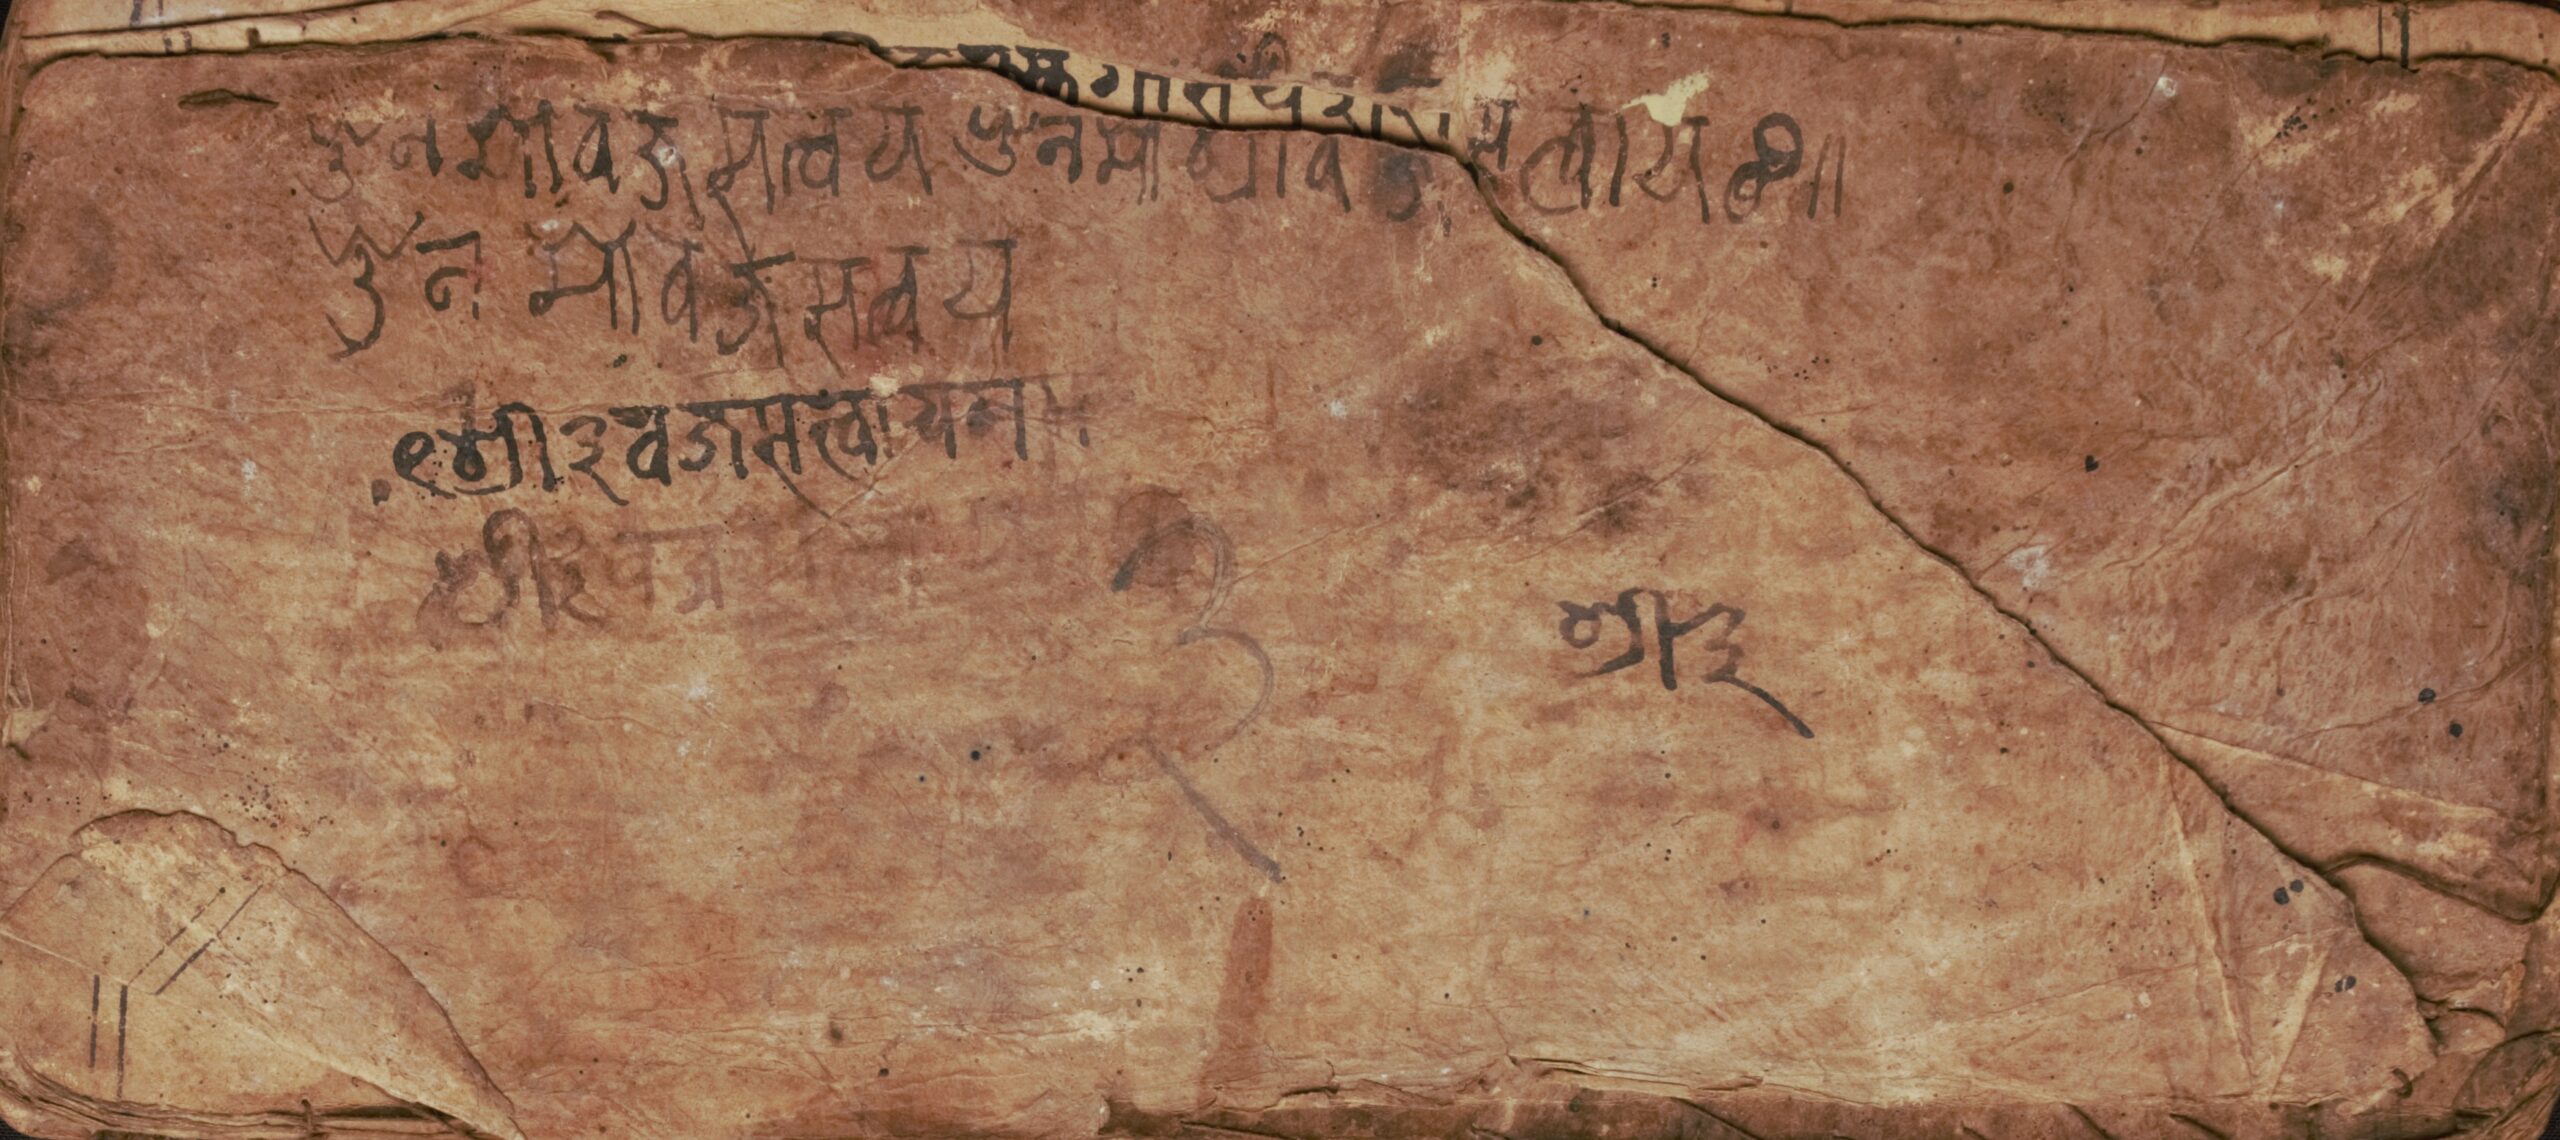 ॐ नमो वज्रसत्वय ॐ नमो श्री वज्रसत्वाय ॥
ॐ नमो वज्रसत्वय
श्री ३ वज्रसत्वाय नम
श्री ३ वज्र
श्री ३